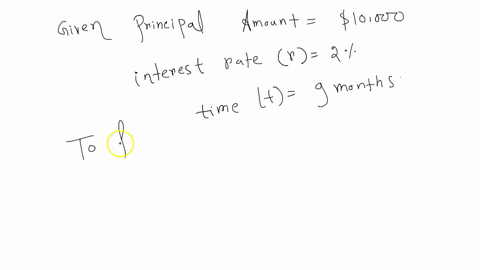 Given Principal Amount = $10,000
interest rate (r) = 2%
time (t) = 9 months.
To f